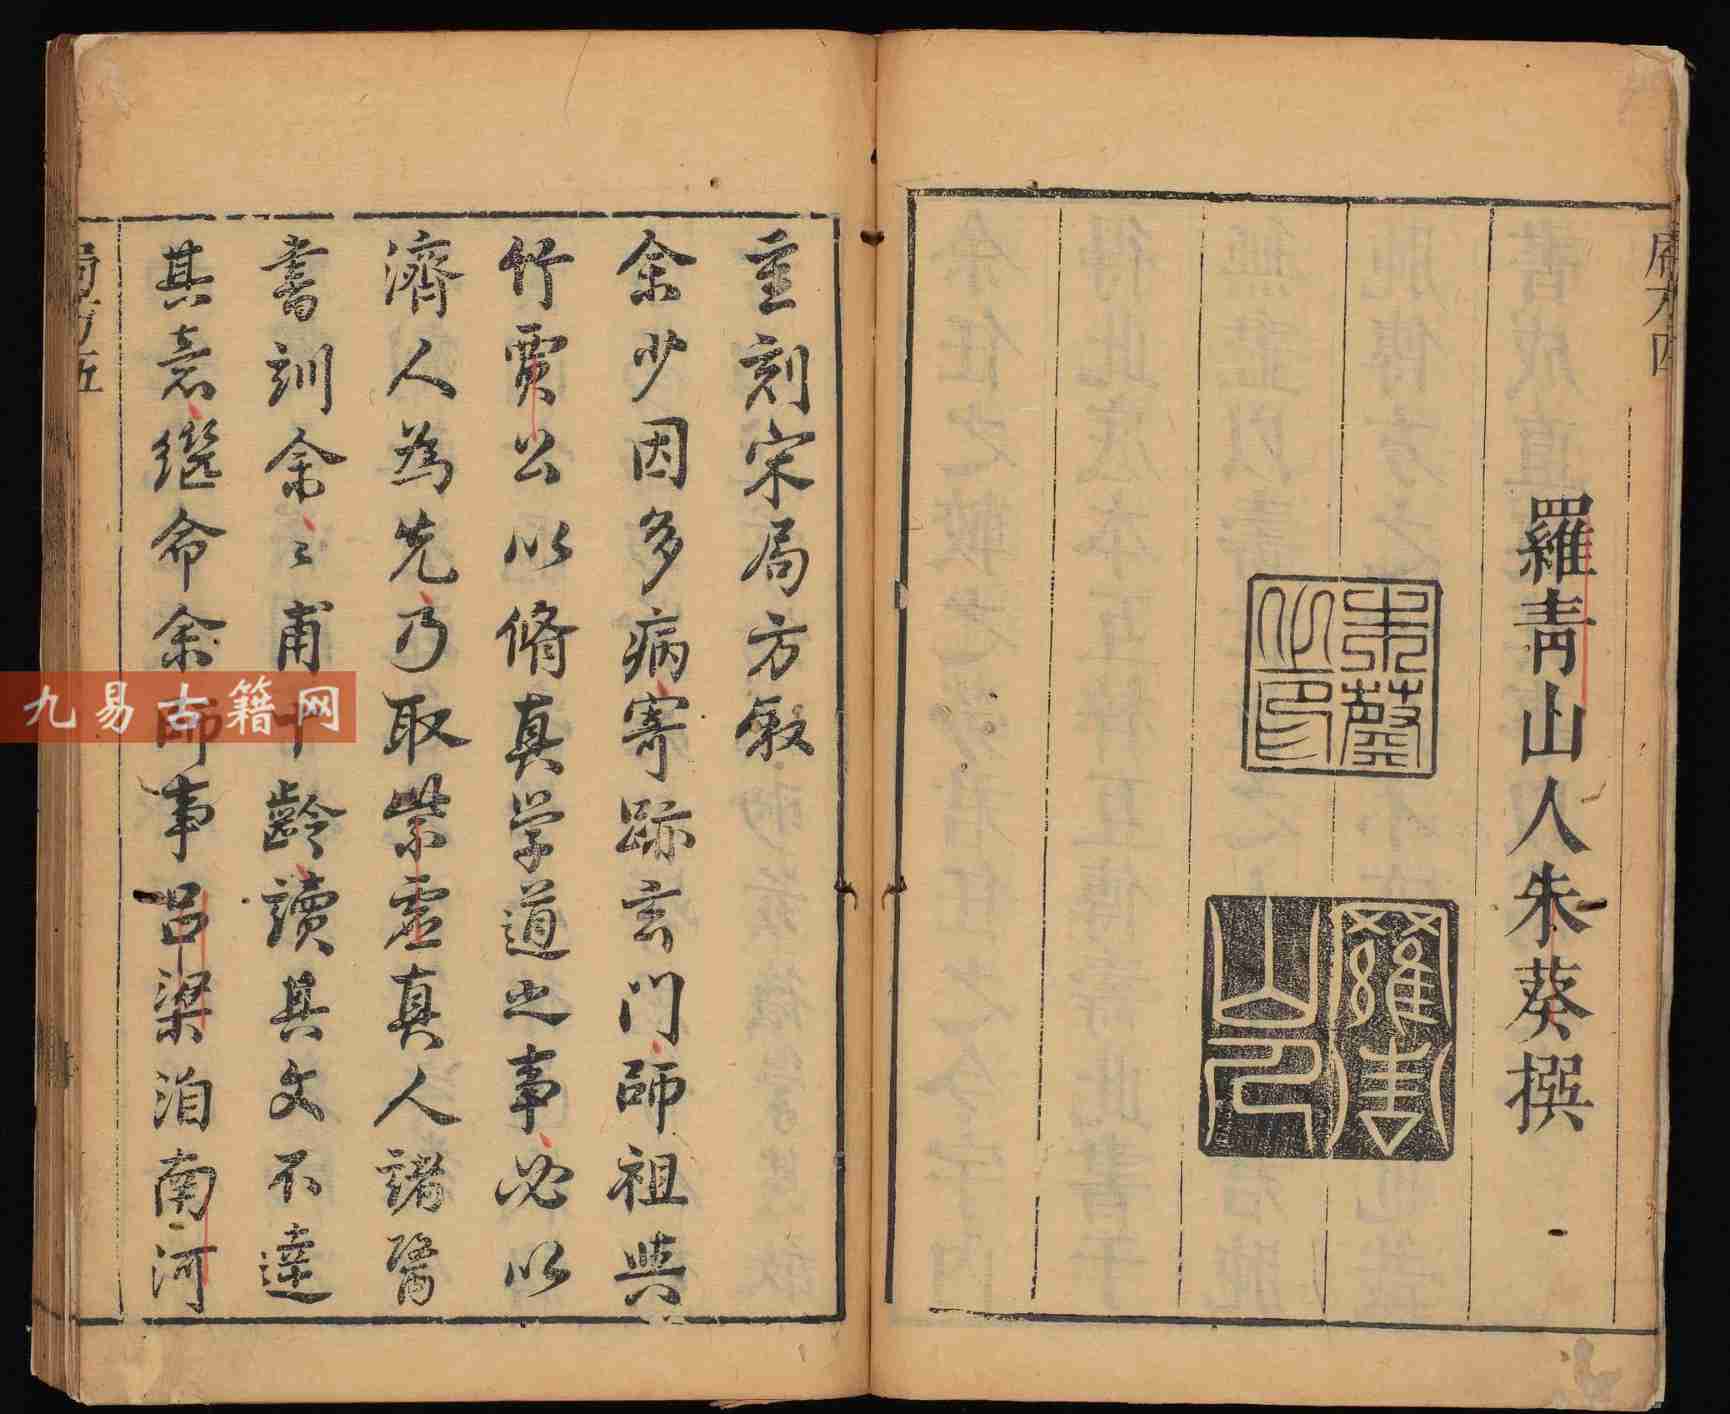 羅青山人朱葵撰
朱葵之印
羅青山人
重刻宋局方叙
余少因多病寄跡玄门師祖典
竹賈公以脩真学道之事必以
濟人為先乃取紫虚真人諸醫
書訓余〻甫十齡讀其文不達
其意繼命余師事呂梁洎南河
九易古籍网